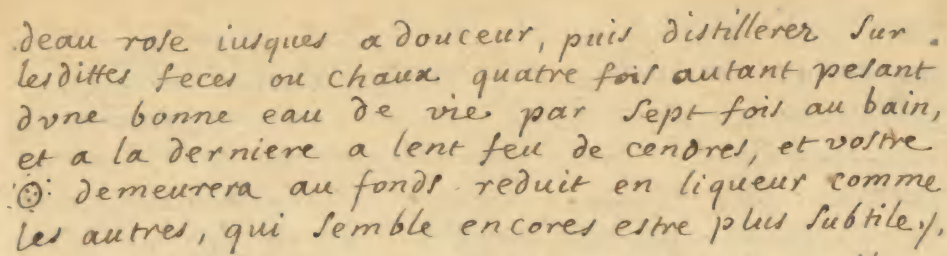 deau rose iusques a douceur, puis distillerez sur
lesdittes feces ou chaux quatre fois autant pesant
dvne bonne eau de vie par sept fois au bain,
et a la derniere a lent feu de cendres, et vostre
☉ demeurera au fonds reduit en liqueur comme
les autres, qui semble encores estre plus subtile./.